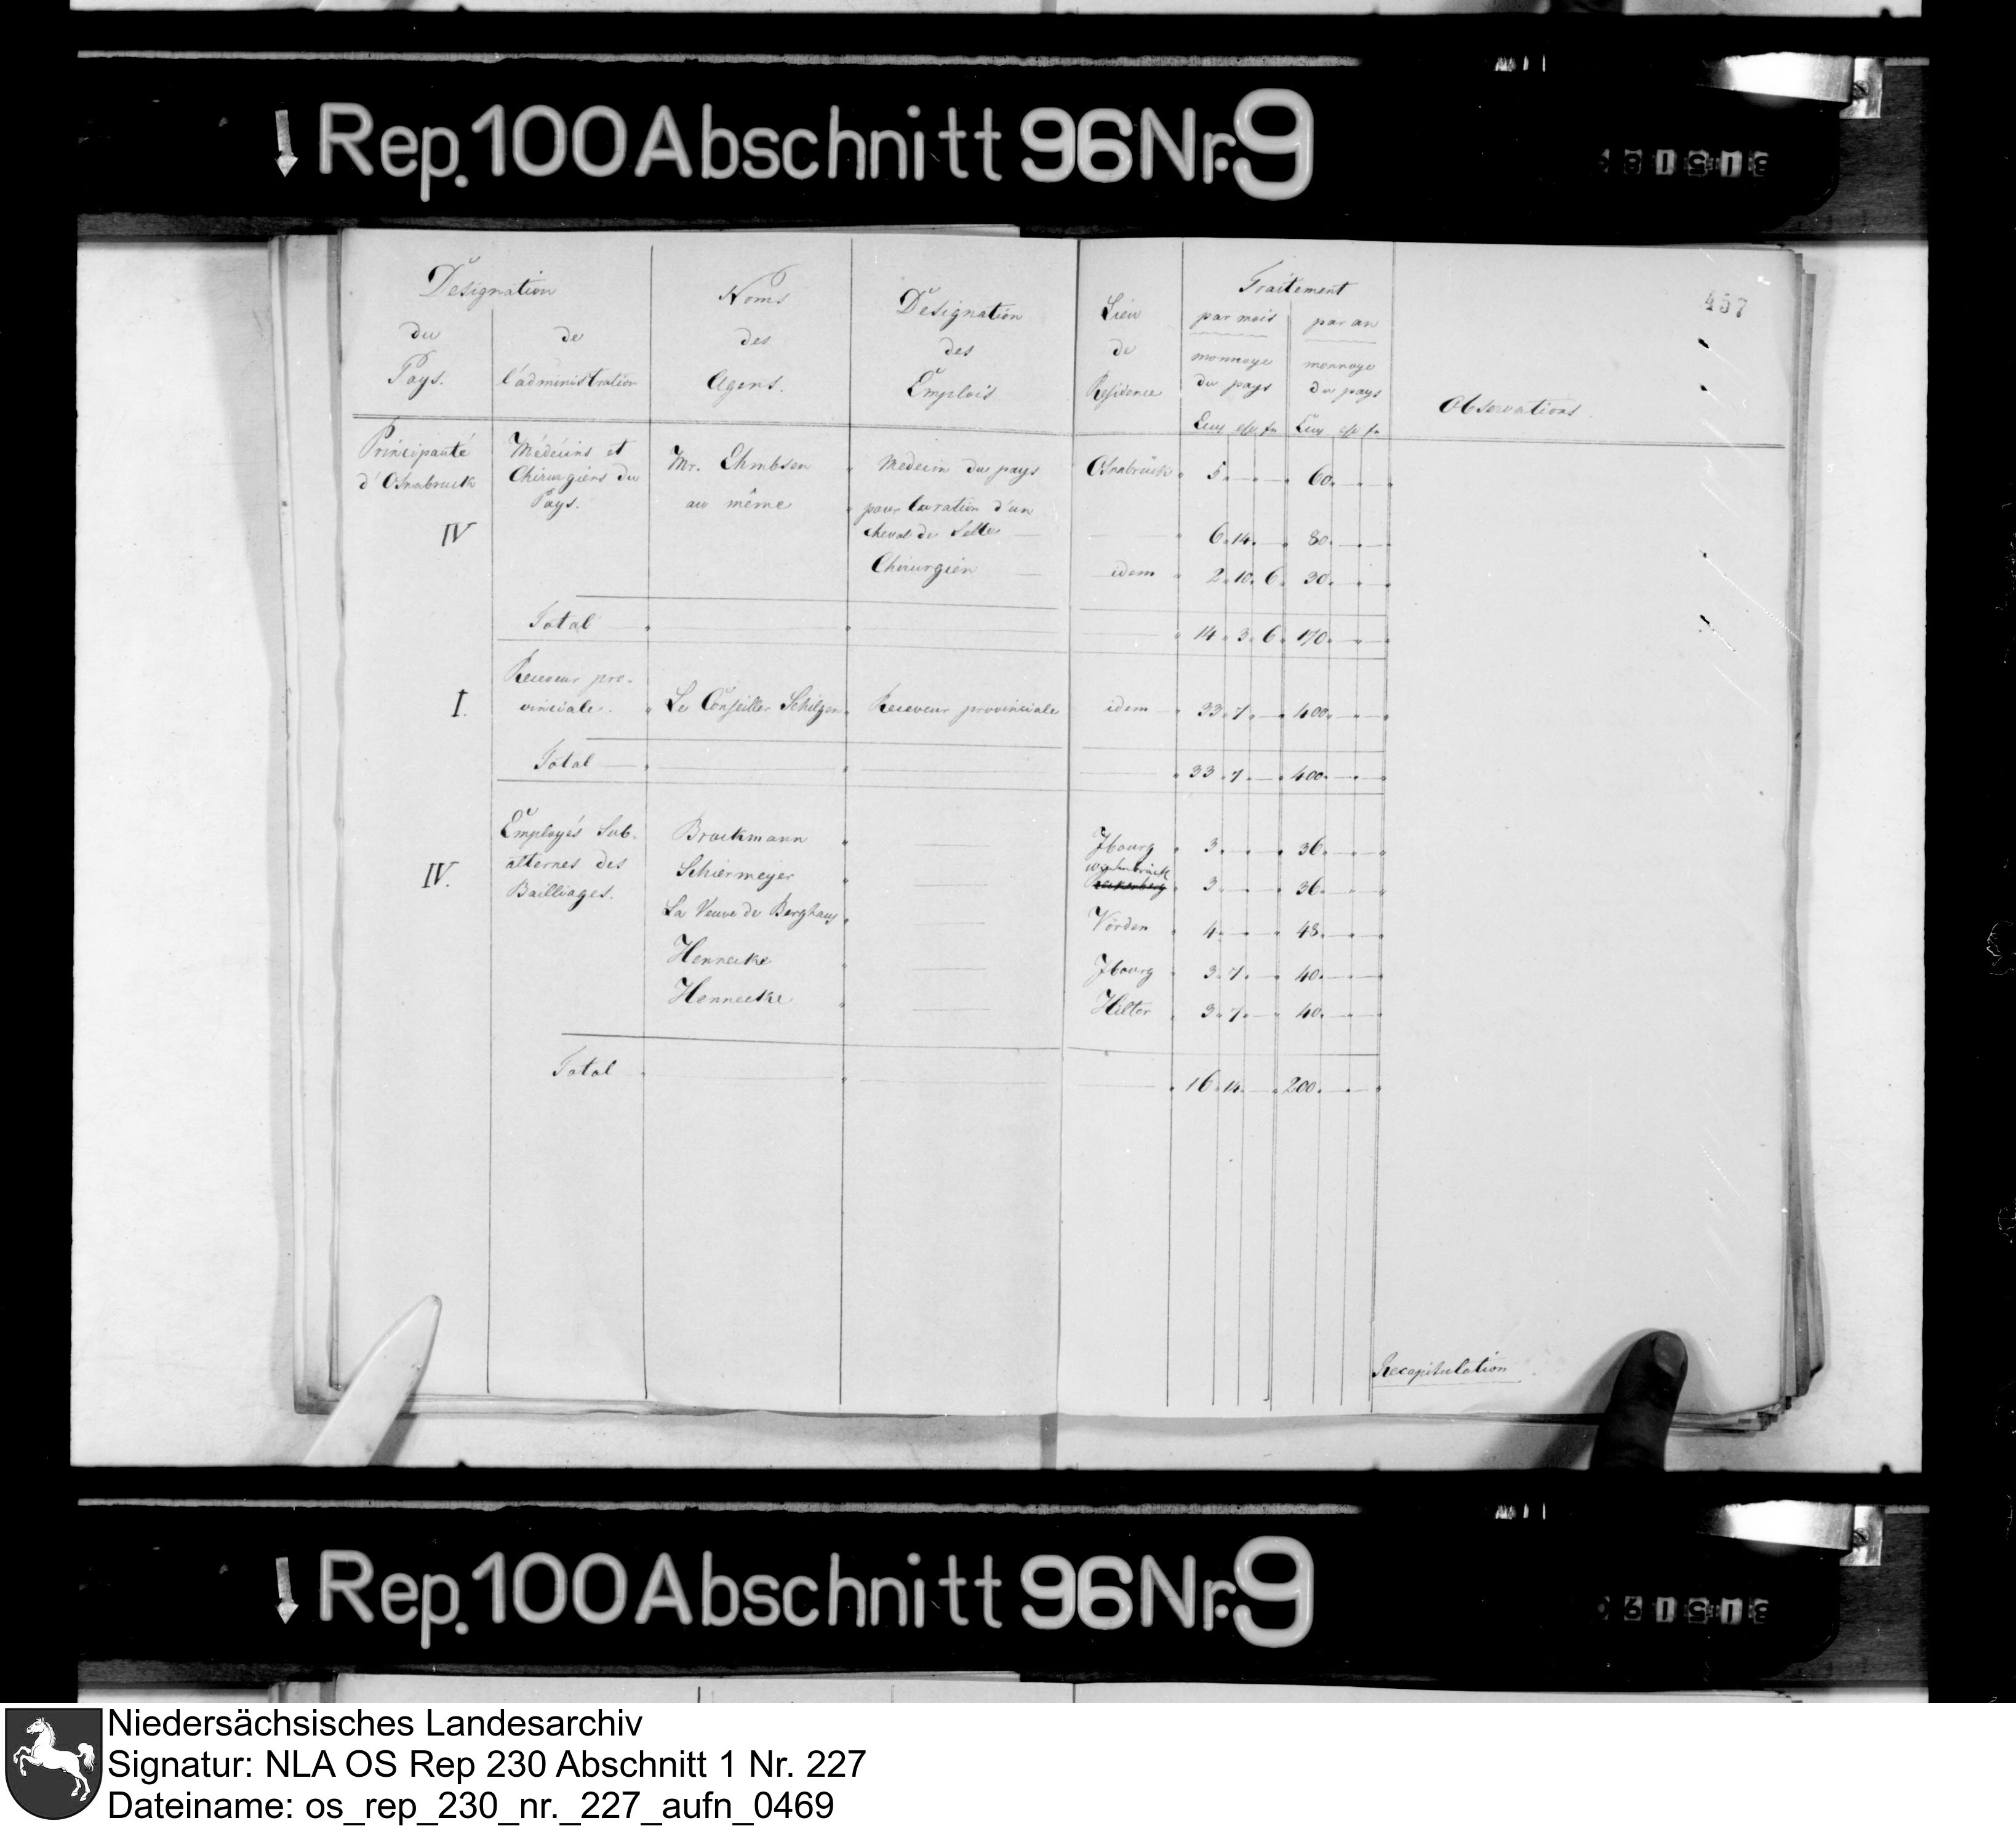 Rep. 100 Abschnitt 96 Nr. 9
457
Designation du Pays. | de l'administration | Noms des Agens. | Designation des Emplois | Lieu de Residence | Traitement par mois monnoye du pays | par an monnoye du pays | Observations.
Principauté Médécins et Mr. Ehmbsen Medecin du pays Osnabrück 5 60
d'Osnabruck Chirurgiens du au même pour la ration d'un
Pays. cheval de Selle 6 14 80
IV
Chirurgien idem 2 10 6 30
Total 14 3 6 170
Receveur pro-
I. vinciale. Le Conseiller Schilgen Receveur provinciale idem 33 7 400
Total 33 7 400
Employés Sub- Brockmann Jbourg 3 36
IV. alternes des Schiermeyer 3 36
Bailliages. La Veuve de Berghaus Vörden 4 48
Hennecke Jbourg 3 7 40
Hennecke Hilter 3 7 40
Total 16 14 200
Recapitulation
Rep. 100 Abschnitt 96 Nr. 9
Niedersächsisches Landesarchiv
Signatur: NLA OS Rep 230 Abschnitt 1 Nr. 227
Dateiname: os_rep_230_nr._227_aufn_0469